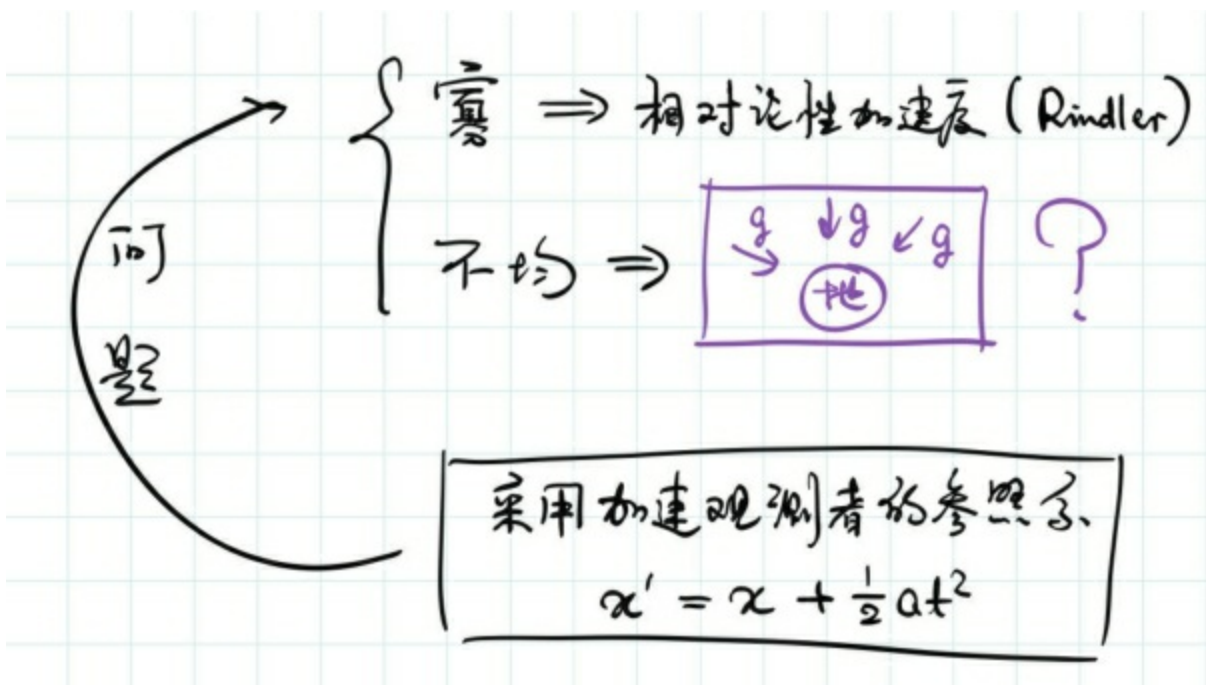 寡 ⇒ 相对论性加速度 (Rindler)
不均 ⇒
g ↓g ↙g
地
?
问题
采用加速观测者的参照系
x' = x + ½at²